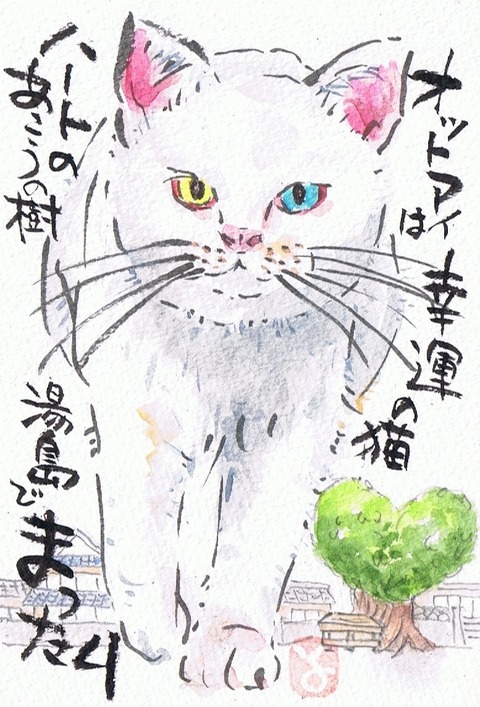 オットアイは
幸運の猫
ハートの
あこうの樹
湯島で
まったり